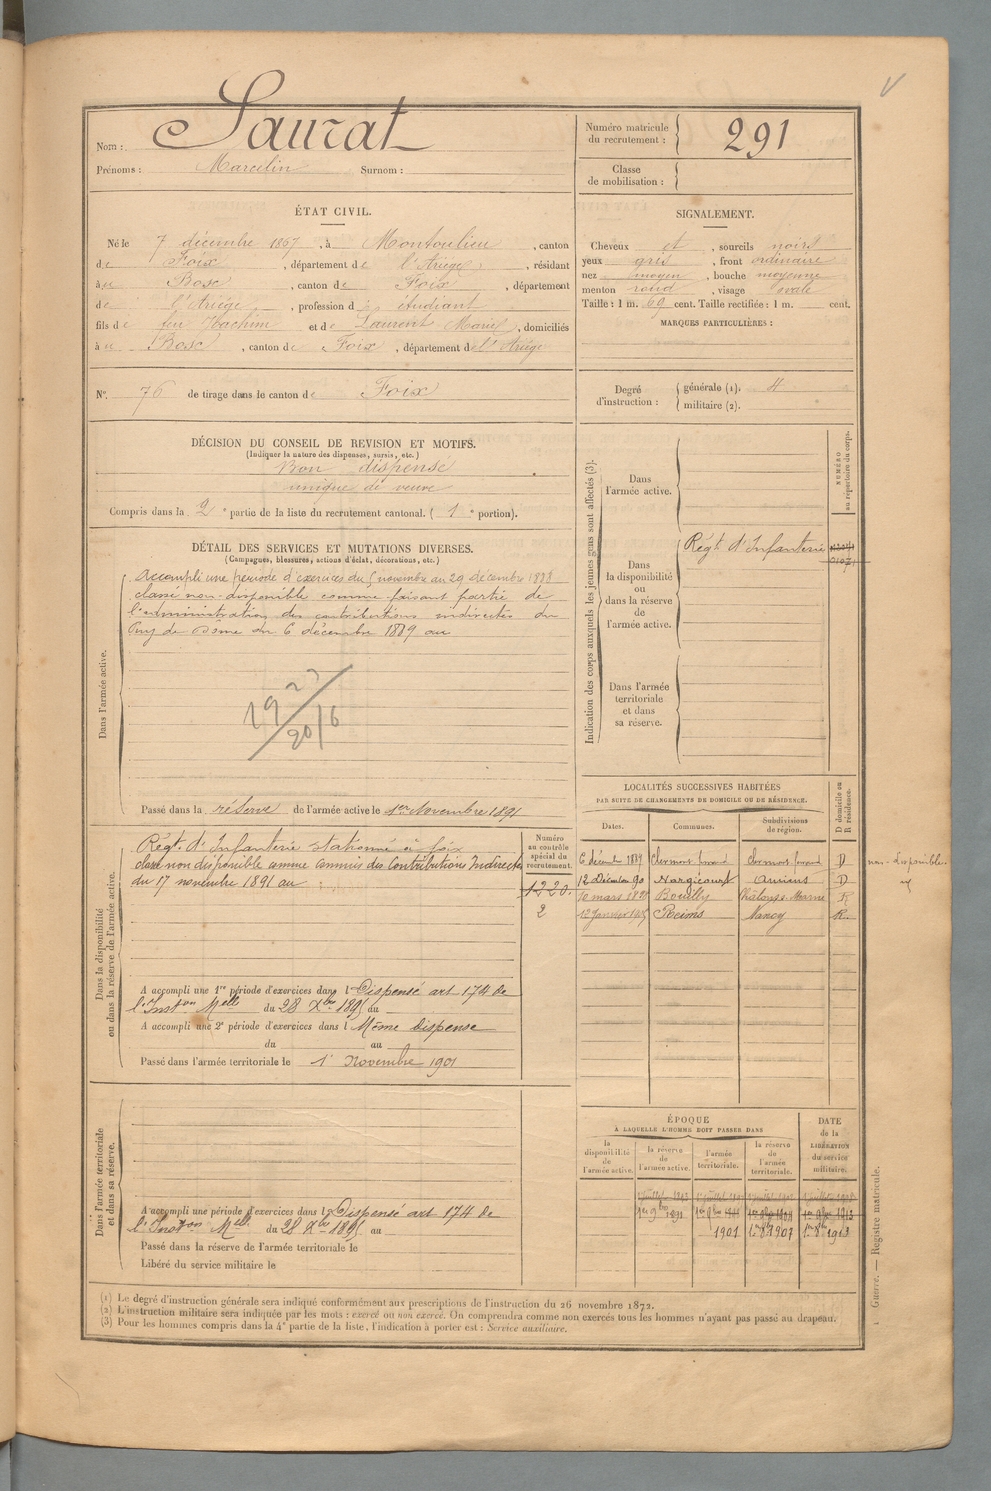 Nom : Saurat
Prénoms : Marcelin Surnom :
Numéro matricule du recrutement : 291
Classe de mobilisation :
ÉTAT CIVIL.
Né le 7 décembre 1867, à Montoulieu, canton
de Foix, département de l'Ariège, résidant
à Bosc, canton de Foix, département
de l'Ariège, profession d étudiant
fils de feu Joachim et de Laurent Marie, domiciliés
à Bosc, canton de Foix, département de l'Ariège
N°. 76 de tirage dans le canton de Foix
SIGNALEMENT.
Cheveux et, sourcils noirs
yeux gris, front ordinaire
nez moyen, bouche moyenne
menton rond, visage ovale
Taille : 1 m. 69 cent. Taille rectifiée : 1 m. cent.
MARQUES PARTICULIÈRES :
Degré d'instruction : générale (1).
militaire (2).
DÉCISION DU CONSEIL DE REVISION ET MOTIFS.
(Indiquer la nature des dispenses, sursis, etc.)
Bon dispensé
unique de veuve
Compris dans la 2e partie de la liste du recrutement cantonal. (1e portion).
DÉTAIL DES SERVICES ET MUTATIONS DIVERSES.
(Campagnes, blessures, actions d'éclat, décorations, etc.)
Dans l'armée active.
Accompli une période d'exercices du 5 novembre au 29 décembre 1888
classé non-disponible comme faisant partie de
l'administration des contributions indirectes du
Puy de Dôme du 6 décembre 1889 au
Passé dans la réserve de l'armée active le 1er Novembre 1891
Indication des corps auxquels les jeunes gens sont affectés (3).
NUMÉRO au répertoire du corps.
Dans l'armée active.
Dans la disponibilité ou dans la réserve de l'armée active.
Régt d'Infanterie
Dans l'armée territoriale et dans sa réserve.
Dans la disponibilité ou dans la réserve de l'armée active.
Régt. d'Infanterie stationné à foix
classé non disponible comme commis des Contributions Indirectes
du 17 novembre 1891 au
Numéro au contrôle spécial du recrutement.
1220.
2
A accompli une 1re période d'exercices dans l Dispensé art 174 de
l'Inston Melle du 28 Xbre 1895 au
A accompli une 2e période d'exercices dans l Même dispense
du au
Passé dans l'armée territoriale le 1er Novembre 1901
LOCALITÉS SUCCESSIVES HABITÉES
PAR SUITE DE CHANGEMENTS DE DOMICILE OU DE RÉSIDENCE.
Dates. Communes. Subdivisions de région. D domicile ou R résidence.
6 décemb 1889 Clermont ferrand Clermont ferrand D non-disponible
12 Décembre 90 Hargicourt Amiens D
Bouilly Châlons s Marne R
Reims Nancy R.
Dans l'armée territoriale et dans sa réserve.
A accompli une période d'exercices dans l Dispensé art 174 de
l'Inston Melle du 28 Xbre 1895 au
Passé dans la réserve de l'armée territoriale le
Libéré du service militaire le
ÉPOQUE
À LAQUELLE L'HOMME DOIT PASSER DANS
la disponibilité de l'armée active. la réserve de l'armée active. l'armée territoriale. la réserve de l'armée territoriale. DATE de la LIBÉRATION du service militaire.
1er 9bre 1891
1901
(1) Le degré d'instruction générale sera indiqué conformément aux prescriptions de l'instruction du 26 novembre 1872.
(2) L'instruction militaire sera indiquée par les mots : exercé ou non exercé. On comprendra comme non exercés tous les hommes n'ayant pas passé au drapeau.
(3) Pour les hommes compris dans la 4e partie de la liste, l'indication à porter est : Service auxiliaire.
Guerre. — Registre matricule.